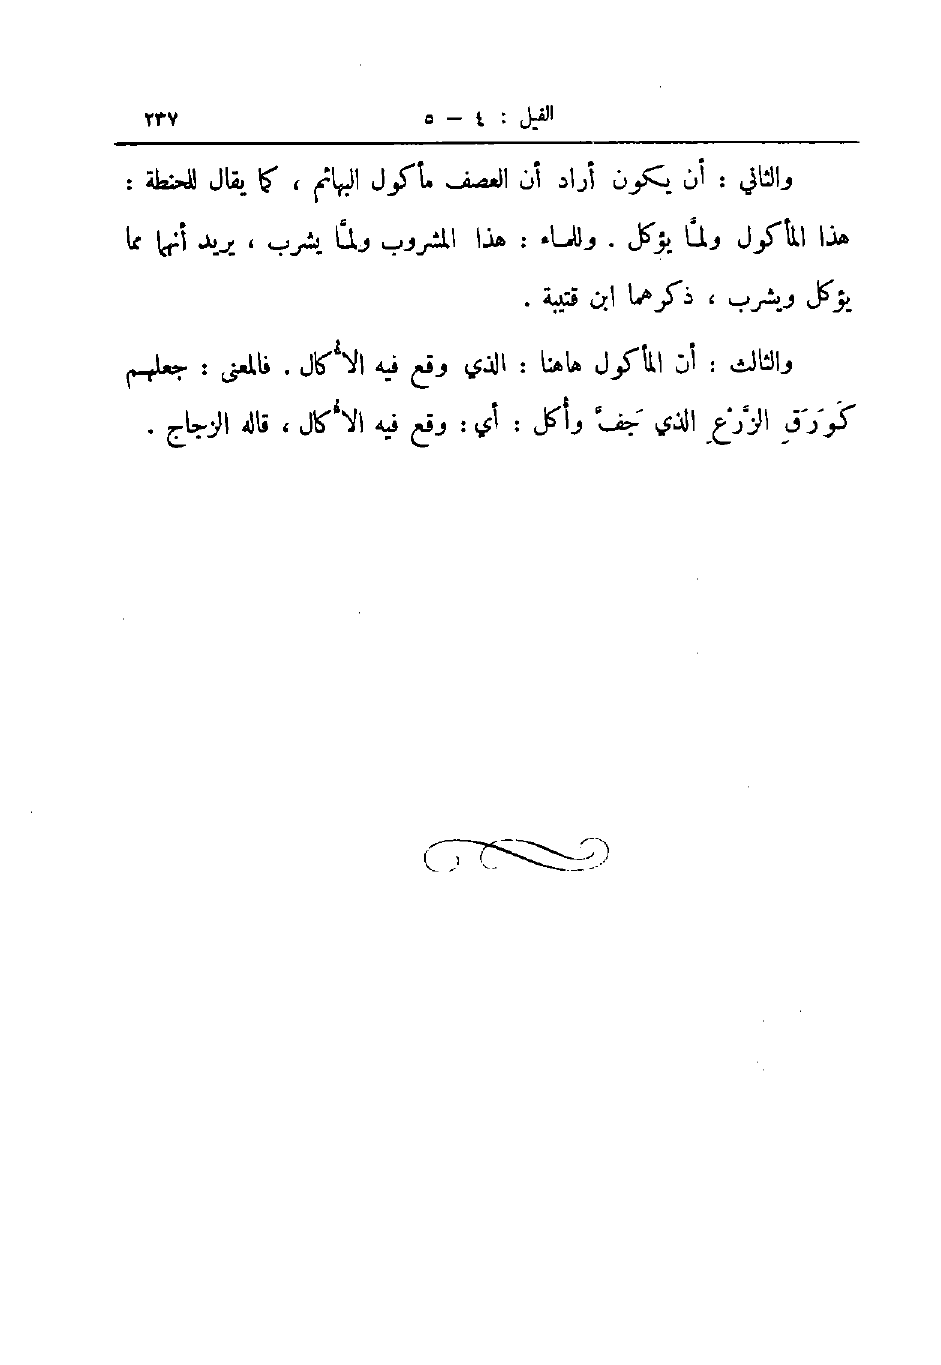 الفيل : ٤ – ٥ ٢٣٧
والثاني : أن يكون أراد أن العصف مأكول البهائم ، كما يقال للحنطة :
هذا المأكول ولمَّا يؤكل . وللماء : هذا المشروب ولمَّا يشرب ، يريد أنهما مما
يؤكل ويشرب ، ذكرهما ابن قتيبة .
والثالث : أن المأكول هاهنا : الذي وقع فيه الأُكال . فالمعنى : جعلهم
كَوَرَقِ الزَّرْعِ الذي جَفَّ وأُكل : أي : وقع فيه الأُكال ، قاله الزجاج .